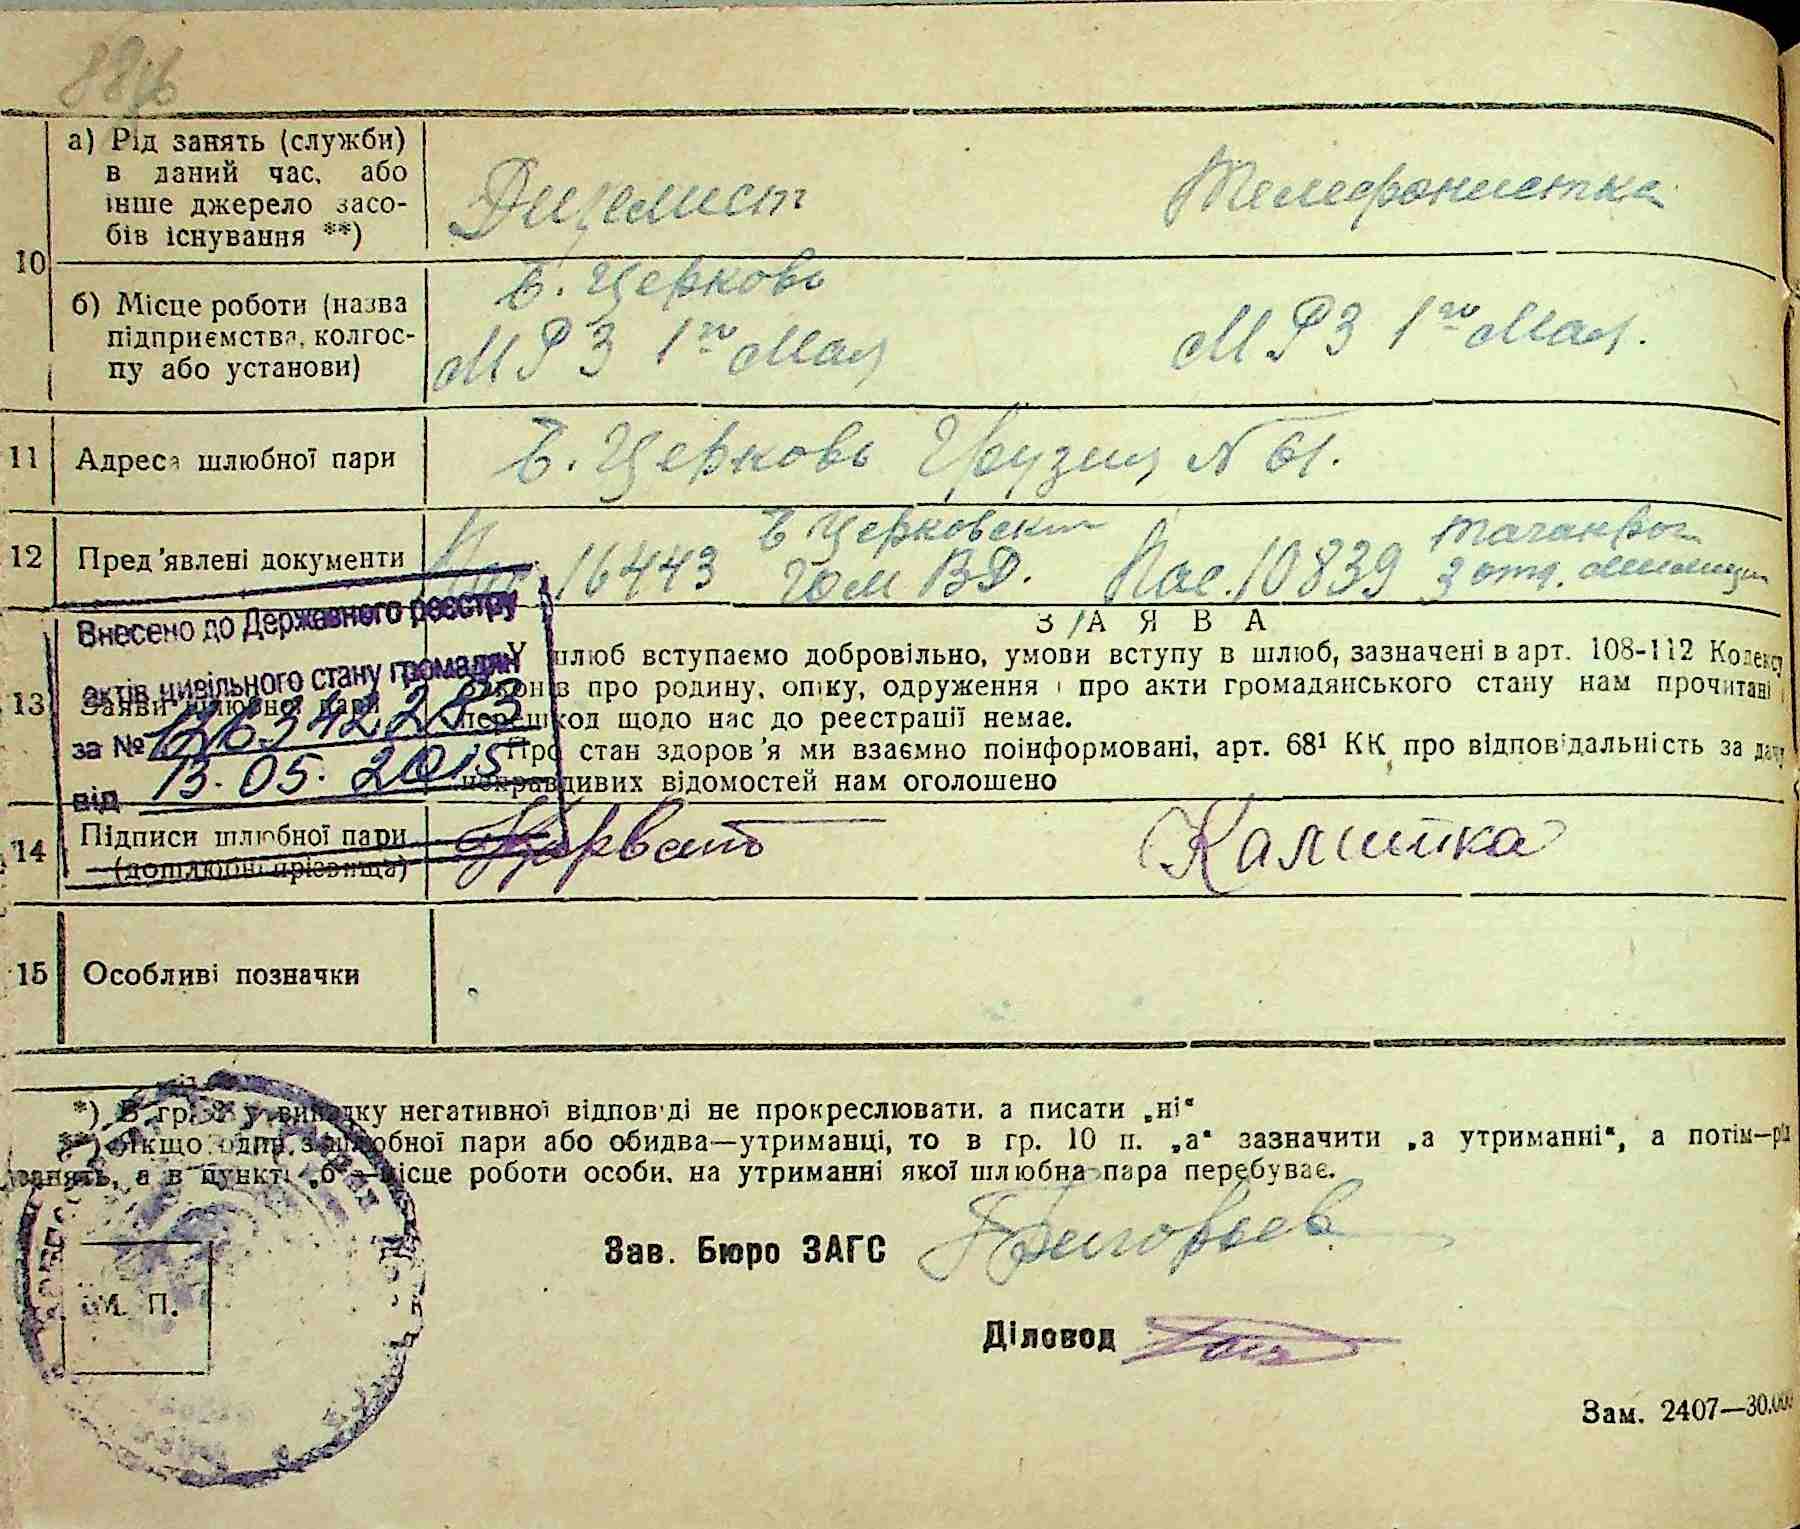 10
а) Рід занять (служби)
в даний час, або
інше джерело засо-
бів існування **)
Дизелист
Телефонистка
б) Місце роботи (назва
підприємства, колгос-
пу або установи)
Б. Церковь
МРЗ 1го Мая
МРЗ 1го Мая.
11
Адреса шлюбної пари
Б. Церковь № 61.
12
Пред'явлені документи
16443
Б Церковск
ВД.
Пас. 10839
Таганрог
3 отд. милиции
Внесено до Державного реєстру
актів цивільного стану громадян
за № 126342283
від 13.05.2015
13
Заяви шлюбної пари
ЗАЯВА
У шлюб вступаємо добровільно, умови вступу в шлюб, зазначені в арт. 108-112 Кодексу
законів про родину, опіку, одруження і про акти громадянського стану нам прочитані і
перешкод щодо нас до реєстрації немає.
Про стан здоров'я ми взаємно поінформовані, арт. 68¹ КК про відповідальність за дачу
неправдивих відомостей нам оголошено
14
Підписи шлюбної пари
(дошлюбні прізвища)
Калитка
15
Особливі позначки
*) В гр. у випадку негативної відповіді не прокреслювати, а писати „ні“
**) Якщо один з шлюбної пари або обидва—утриманці, то в гр. 10 п. „а“ зазначити „а утриманні“, а потім—рід
занять, а в пункті „б“—місце роботи особи, на утриманні якої шлюбна пара перебуває.
Зав. Бюро ЗАГС Григорьев
Діловод
М. П.
Зам. 2407—30.000